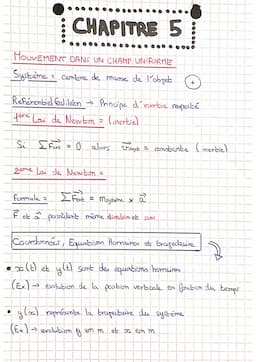 CHAPITRE 5
MOUVEMENT DANS UN CHAMP UNIFORME
Système = centre de masse de l'objet
Référentiel Galiléen → Principe d'inertie respecté
1ère Loi de Newton = (inertie)
Si ΣFext = 0 alors = constante (inertie)
2ème Loi de Newton =
Formule = ΣFext = Msystème × a
F et a possèdent même direction et sens
Coordonnées, Equations Horaires et trajectoire
• x(t) et y(t) sont des équations horaires
(Ex) → évolution de la position verticale en fonction du temps
• y(x) représente la trajectoire du système
(Ex) → évolution y en m et x en m